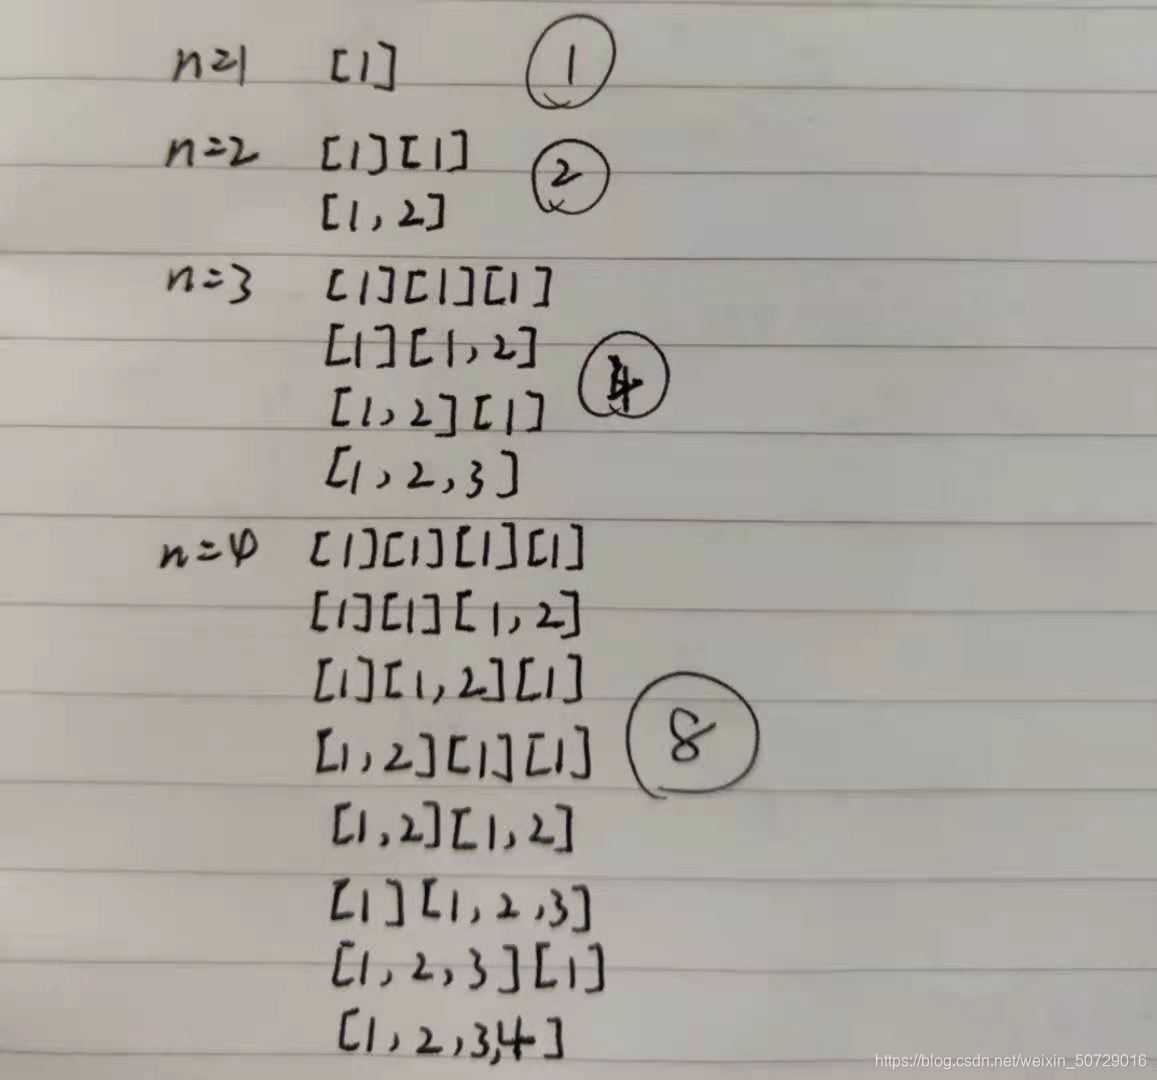 n=1 [1] 1
n=2 [1][1]
2
[1,2]
n=3 [1][1][1]
[1][1,2]
4
[1,2][1]
[1,2,3]
n=4 [1][1][1][1]
[1][1][1,2]
[1][1,2][1]
[1,2][1][1] 8
[1,2][1,2]
[1][1,2,3]
[1,2,3][1]
[1,2,3,4]
https://blog.csdn.net/weixin_50729016